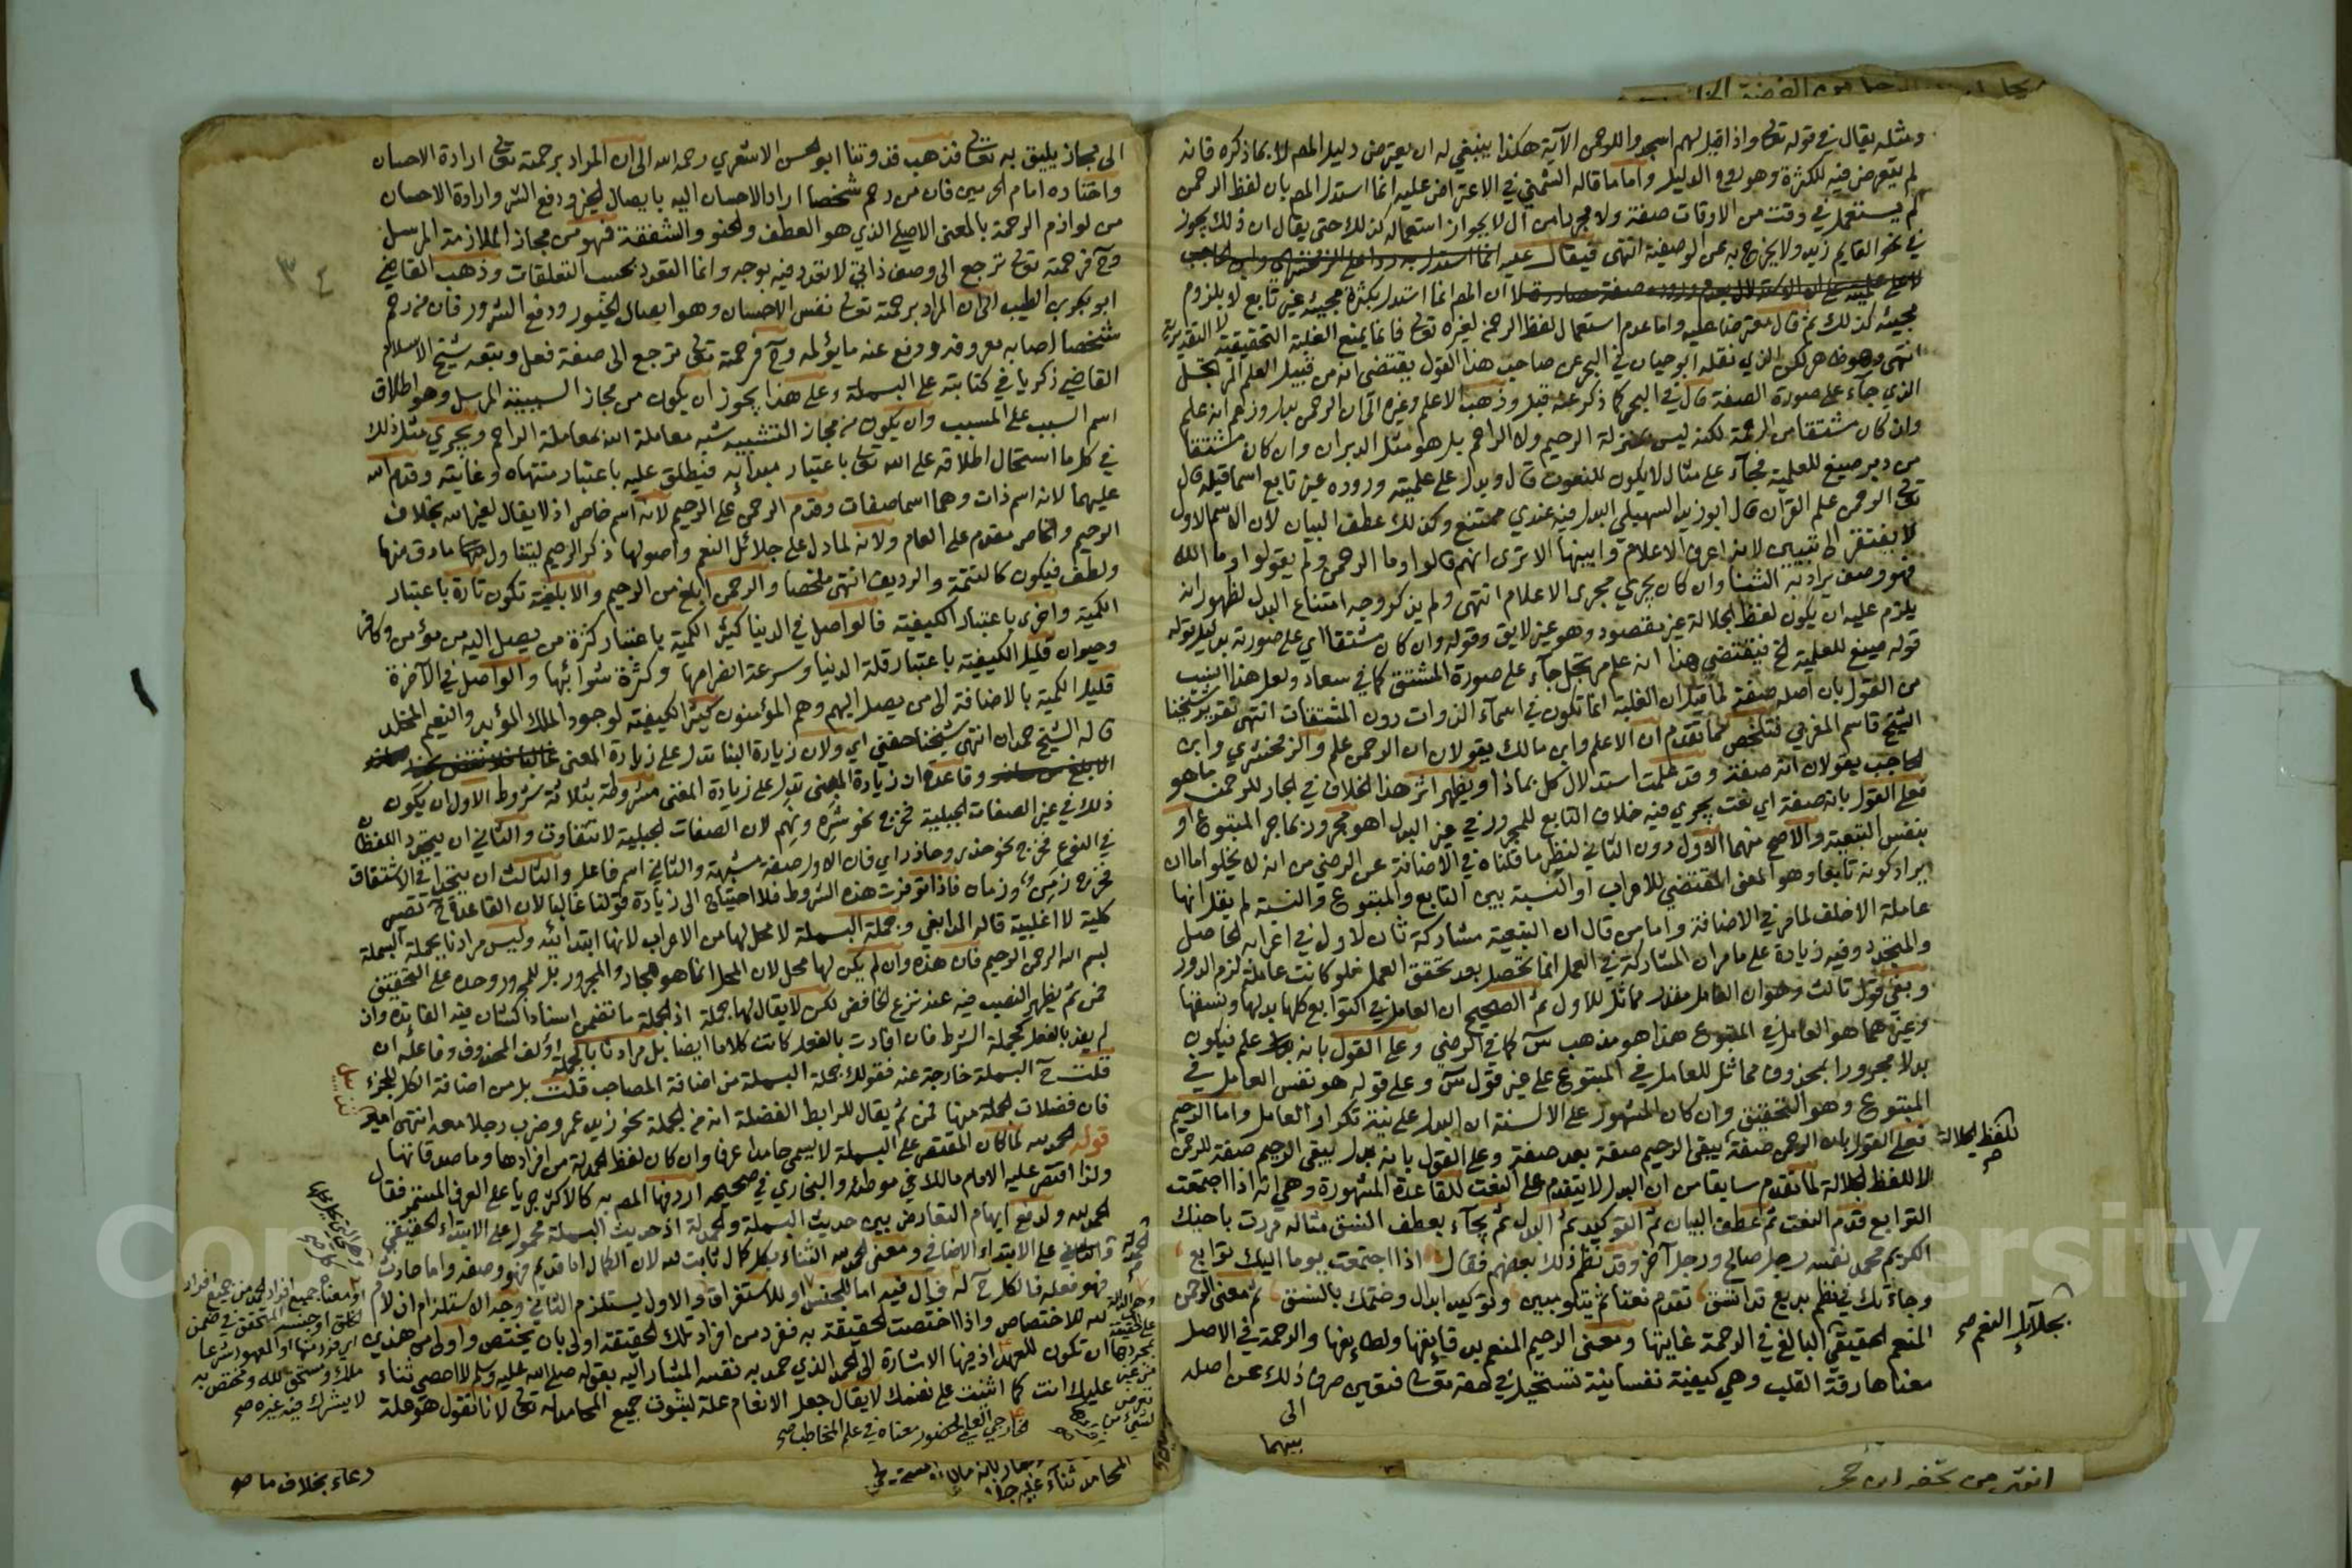 ومثله يقال في قوله تعالى واذا قيل لهم اسجدوا للرحمن الآية هكذا ينبغي له ان يعترض دليل المص لا بما ذكره فانه
لم يتعرض فيه للكثرة وهو روح الدليل واما ما قاله الشمني في الاعتراض عليه انما استدل المص بان لفظ الرحمن
لم يستعمل في وقت من الاوقات صفة ولا مجردا من ال لا بجواز استعماله كذلك حتى يقال ان ذلك يجوز
في نحو القايم زيد ولا يخرج به عن الوصفية انتهى فيقال عليه
ان المص انما استدل بكثرة مجيئه غير تابع لا بلزوم
مجيئه كذلك ثم قال معترضا عليه واما عدم استعمال لفظ الرحمن لغيره تعالى فانما يمنع الغلبة التحقيقية لا التقديرية
انتهى وهو ظاهر لكن الذي نقله ابو حيان في البحر عن صاحب هذا القول يقتضي انه من قبيل العلم المرتجل
الذي جاء على صورة الصفة قال في البحر كما ذكر عنه قبل وذهب الاعلم وغيره الى ان الرحمن بدل وزعم انه علم
وان كان مشتقا من الرحمة لكنه ليس بمنزلة الرحيم ولا الراحم بل هو مثل الدبران وان كان مشتقا
من دبر صيغ للعلمية فجآء على مثال لا يكون للنعوت قال ويدل على علميته وروده غير تابع اسما قبله قال
تعالى الرحمن علم القرآن قال ابو زيد السهيلي البدل فيه عندي ممتنع وكذلك عطف البيان لان الاسم الاول
لا يفتقر الى تبيين لانه اعرف الاعلام وابينها الا ترى انهم قالوا وما الرحمن ولم يقولوا وما الله
فهو وصف يراد به الثنا وان كان يجري مجرى الاعلام انتهى ولم يذكر وجه امتناع البدل لظهور انه
يلزم عليه ان يكون لفظ الجلالة غير مقصود وهو غير لايق وقوله وان كان مشتقا اي على صورته بدليل قوله
قوله صيغ للعلمية الخ فيقتضي هذا انه علم مرتجل جآء على صورة المشتق كما في سعاد ولعل هذا انسب
من القول بان اصله صفة لما قيل ان الغلبة انما تكون في اسماء الذوات دون المشتقات انتهى تقرير شيخنا
الشيخ قاسم المغربي فتلخص مما تقدم ان الاعلم وابن مالك يقولان ان الرحمن علم والزمخشري وابن
الحاجب يقولان انه صفة وقد علمت استدلال كل بماذا ويظهر اثر هذا الخلاف في الجار للرحمن ما هو
فعلى القول بانه صفة اي نعت يجري فيه خلاف التابع للمجرور في غير البدل اهو مجرور بما جر المتبوع او
بنفس التبعية والاصح منهما الاول دون الثاني لنظير ما قلناه في الاضافة عن الرضي من انه لا يخلوا اما ان
يراد كونه تابعا وهو المعنى المقتضي للاعراب او النسبة بين التابع والمتبوع والنسبة لم يقل انها
عاملة الا خلف لما مر في الاضافة واما من قال ان التبعية مشاركة ثان لاول في اعرابه الحاصل
والمتجدد وفيه زيادة على ما مر ان المشاركة في العمل انما تحصل بعد تحقق العمل فلو كانت عاملة لزم الدور
وبقي قول ثالث وهو ان العامل مقدر مماثل للاول ثم الصحيح ان العامل في التوابع كلها بدلها ونسقها
وغيرهما هو العامل في المتبوع هذا هو مذهب س كما في الرضي وعلى القول بانه علم فيكون
بدلا مجرورا بمحذوف مماثل للعامل في المتبوع على غير قول س وعلى قوله هو نفس العامل في
المتبوع وهو التحقيق وان كان المشهور على الالسنة ان البدل على نية تكرار العامل واما الرحيم
فعلى القول بان الرحمن صفة يبقى الرحيم صفة بعد صفة وعلى القول بانه بدل يبقى الرحيم صفة للرحمن
للفظ الجلالة
لا للفظ الجلالة لما تقدم سابقا من ان البدل لا يتقدم على النعت للقاعدة المشهورة وهي انه اذا اجتمعت
التوابع قدم النعت ثم عطف البيان ثم التوكيد ثم البدل ثم يجآء بعطف النسق مثاله مررت باخيك
الكريم محمد نفسه رجل صالح ورجل آخر وقد نظم ذلك بعضهم فقال اذا اجتمعت يوما اليك توابع
وجاءتك في نظم بديع قد اتسق تقدم نعتا ثم يتلو مبين وتوكيد ابدال وضتمك بالنسق ثم معنى الرحمن
المنعم الحقيقي البالغ في الرحمة غايتها ومعنى الرحيم المنعم بدقايقها ولطايفها والرحمة في الاصل
بجلايل النعم صح
معناها رقة القلب وهي كيفية نفسانية تستحيل في حقه تعالى فتعين صرف ذلك عن اصله
الى
بينهما
الى مجاز يليق به تعالى فذهب قدوتنا ابو الحسن الاشعري رحمه الله الى ان المراد برحمته تعالى ارادة الاحسان
واختاره امام الحرمين فان من رحم شخصا اراد الاحسان اليه بايصال الخير ودفع الشر وارادة الاحسان
من لوازم الرحمة بالمعنى الاصلي الذي هو العطف والحنو والشفقة فهو من مجاز الملازمة المرسل
وح فرحمته تعالى ترجع الى وصف ذاتي لا تعدد فيه بوجه وانما التعدد بحسب التعلقات وذهب القاضي
ابو بكر بن الطيب الى ان المراد برحمته تعالى نفس الاحسان وهو ايصال الخيور ودفع الشرور فان من رحم
شخصا اصابه معروفه ودفع عنه ما يؤلمه وح فرحمته تعالى ترجع الى صفة فعل وتبعه شيخ الاسلام
القاضي زكريا في كتابته على البسملة وعلى هذا يجوز ان يكون من مجاز السببية المرسل وهو اطلاق
اسم السبب على المسبب وان يكون من مجاز التشبيه شبه معاملة الله بمعاملة الراحم ويجري مثل ذلك
في كل ما استحال اطلاقه على الله تعالى باعتبار مبدايه فيطلق عليه باعتبار منتهاه وغايته وقدم الله
عليهما لانه اسم ذات وهما اسما صفات وقدم الرحمن على الرحيم لانه اسم خاص اذ لا يقال لغير الله بخلاف
الرحيم والخاص مقدم على العام ولانه لما دل على جلائل النعم واصولها ذكر الرحيم ليتناول ما دق منها
ولطف فيكون كالتتمة والرديف انتهى ملخصا والرحمن ابلغ من الرحيم والابلغية تكون تارة باعتبار
الكمية واخرى باعتبار الكيفية فالواصل في الدنيا كثير الكمية باعتبار كثرة من يصل اليه من مؤمن وكافر
وحيوان قليل الكيفية باعتبار قلة الدنيا وسرعة انصرامها وكثرة شوائبها والواصل في الآخرة
قليل الكمية بالاضافة الى من يصل اليهم وهم المؤمنون كثير الكيفية لوجود الملك المؤبد والنعيم المخلد
قاله الشيخ حمدان انتهى شيخنا حفني اي ولان زيادة البنا تدل على زيادة المعنى
وقاعدة ان زيادة المبنى تدل على زيادة المعنى مشروطة بثلاثة شروط الاول ان يكون
ذلك في غير الصفات الجبلية فخرج نحو شره ونهم لان الصفات الجبلية لا تتفاوت والثاني ان يتحد اللفظان
في النوع فخرج نحو حذر وحاذر اي فان الاول صفة مشبهة والثاني اسم فاعل والثالث ان يتحدا في الاشتقاق
فخرج زمن وزمان فاذا توفرت هذه الشروط فلا احتياج الى زيادة قولنا غالبا لان القاعدة ح تصير
كلية لا اغلبية قاله المدابغي وجملة البسملة لا محل لها من الاعراب لانها ابتدائية وليس مرادنا بجملة البسملة
بسم الله الرحمن الرحيم فان هذه وان لم يكن لها محل لان المحل انما هو للجار والمجرور بل للمجرور وحده على التحقيق
فمن ثم يظهر النصب فيه عند نزع الخافض لكن لا يقال لها جملة اذ الجملة ما تضمن اسنادا كشان فيه الفائدة وان
لم يفد بالفعل كجملة الشرط فان افادت بالفعل كانت كلاما ايضا بل مرادنا بالجملة اؤلف المحذوف وفاعله ان
قلت ح البسملة خارجة عنه فقولك جملة البسملة من اضافة المصاحب قلت بل من اضافة الكل للجزء
فان فضلات الجملة منها فمن ثم يقال للرابط الفضلة انه من الجملة نحو زيد عمرو ضرب رجلا معه انتهى امير
قوله الحمد لله لما كان المقتصر على البسملة لا يسمى حامدا عرفا وان كان لفظ الحمدلة من افرادها وما صدقاتها
ولذا اقتصر عليه الامام مالك في موطئه والبخاري في صحيحه اردفها المص به كالاكثر جريا على العرف المستمر فقال
الحمد لله ولدفع ايهام التعارض بين حديث البسملة والحمدلة اذ حديث البسملة محمول على الابتداء الحقيقي
والثاني على الابتداء الاضافي ومعنى الحمد لله الثناء بكل كمال ثابت لله لان الكمال اما قديم فهو وصفه واما حادث
فهو فعله فالكل ح له وال فيه اما للجنس او للاستغراق والاول يستلزم الثاني وجه الاستلزام ان لام
لله للاختصاص واذا اختصت الحقيقة به ففرد من افراد تلك الحقيقة اولى بان يختص واولى من هذين
ان تكون للعهد اذ فيها الاشارة الى الحمد الذي حمد به نفسه المشار اليه بقوله صلى الله عليه وسلم لا احصي ثناء
عليك انت كما اثنيت على نفسك لا يقال جعل الانعام علة لثبوت جميع المحامد له تعالى لانا نقول هو علة
ملك ومستحق لله ومختص به
لا يشرك فيه غيره صح
دعاء بخلاف ما صح